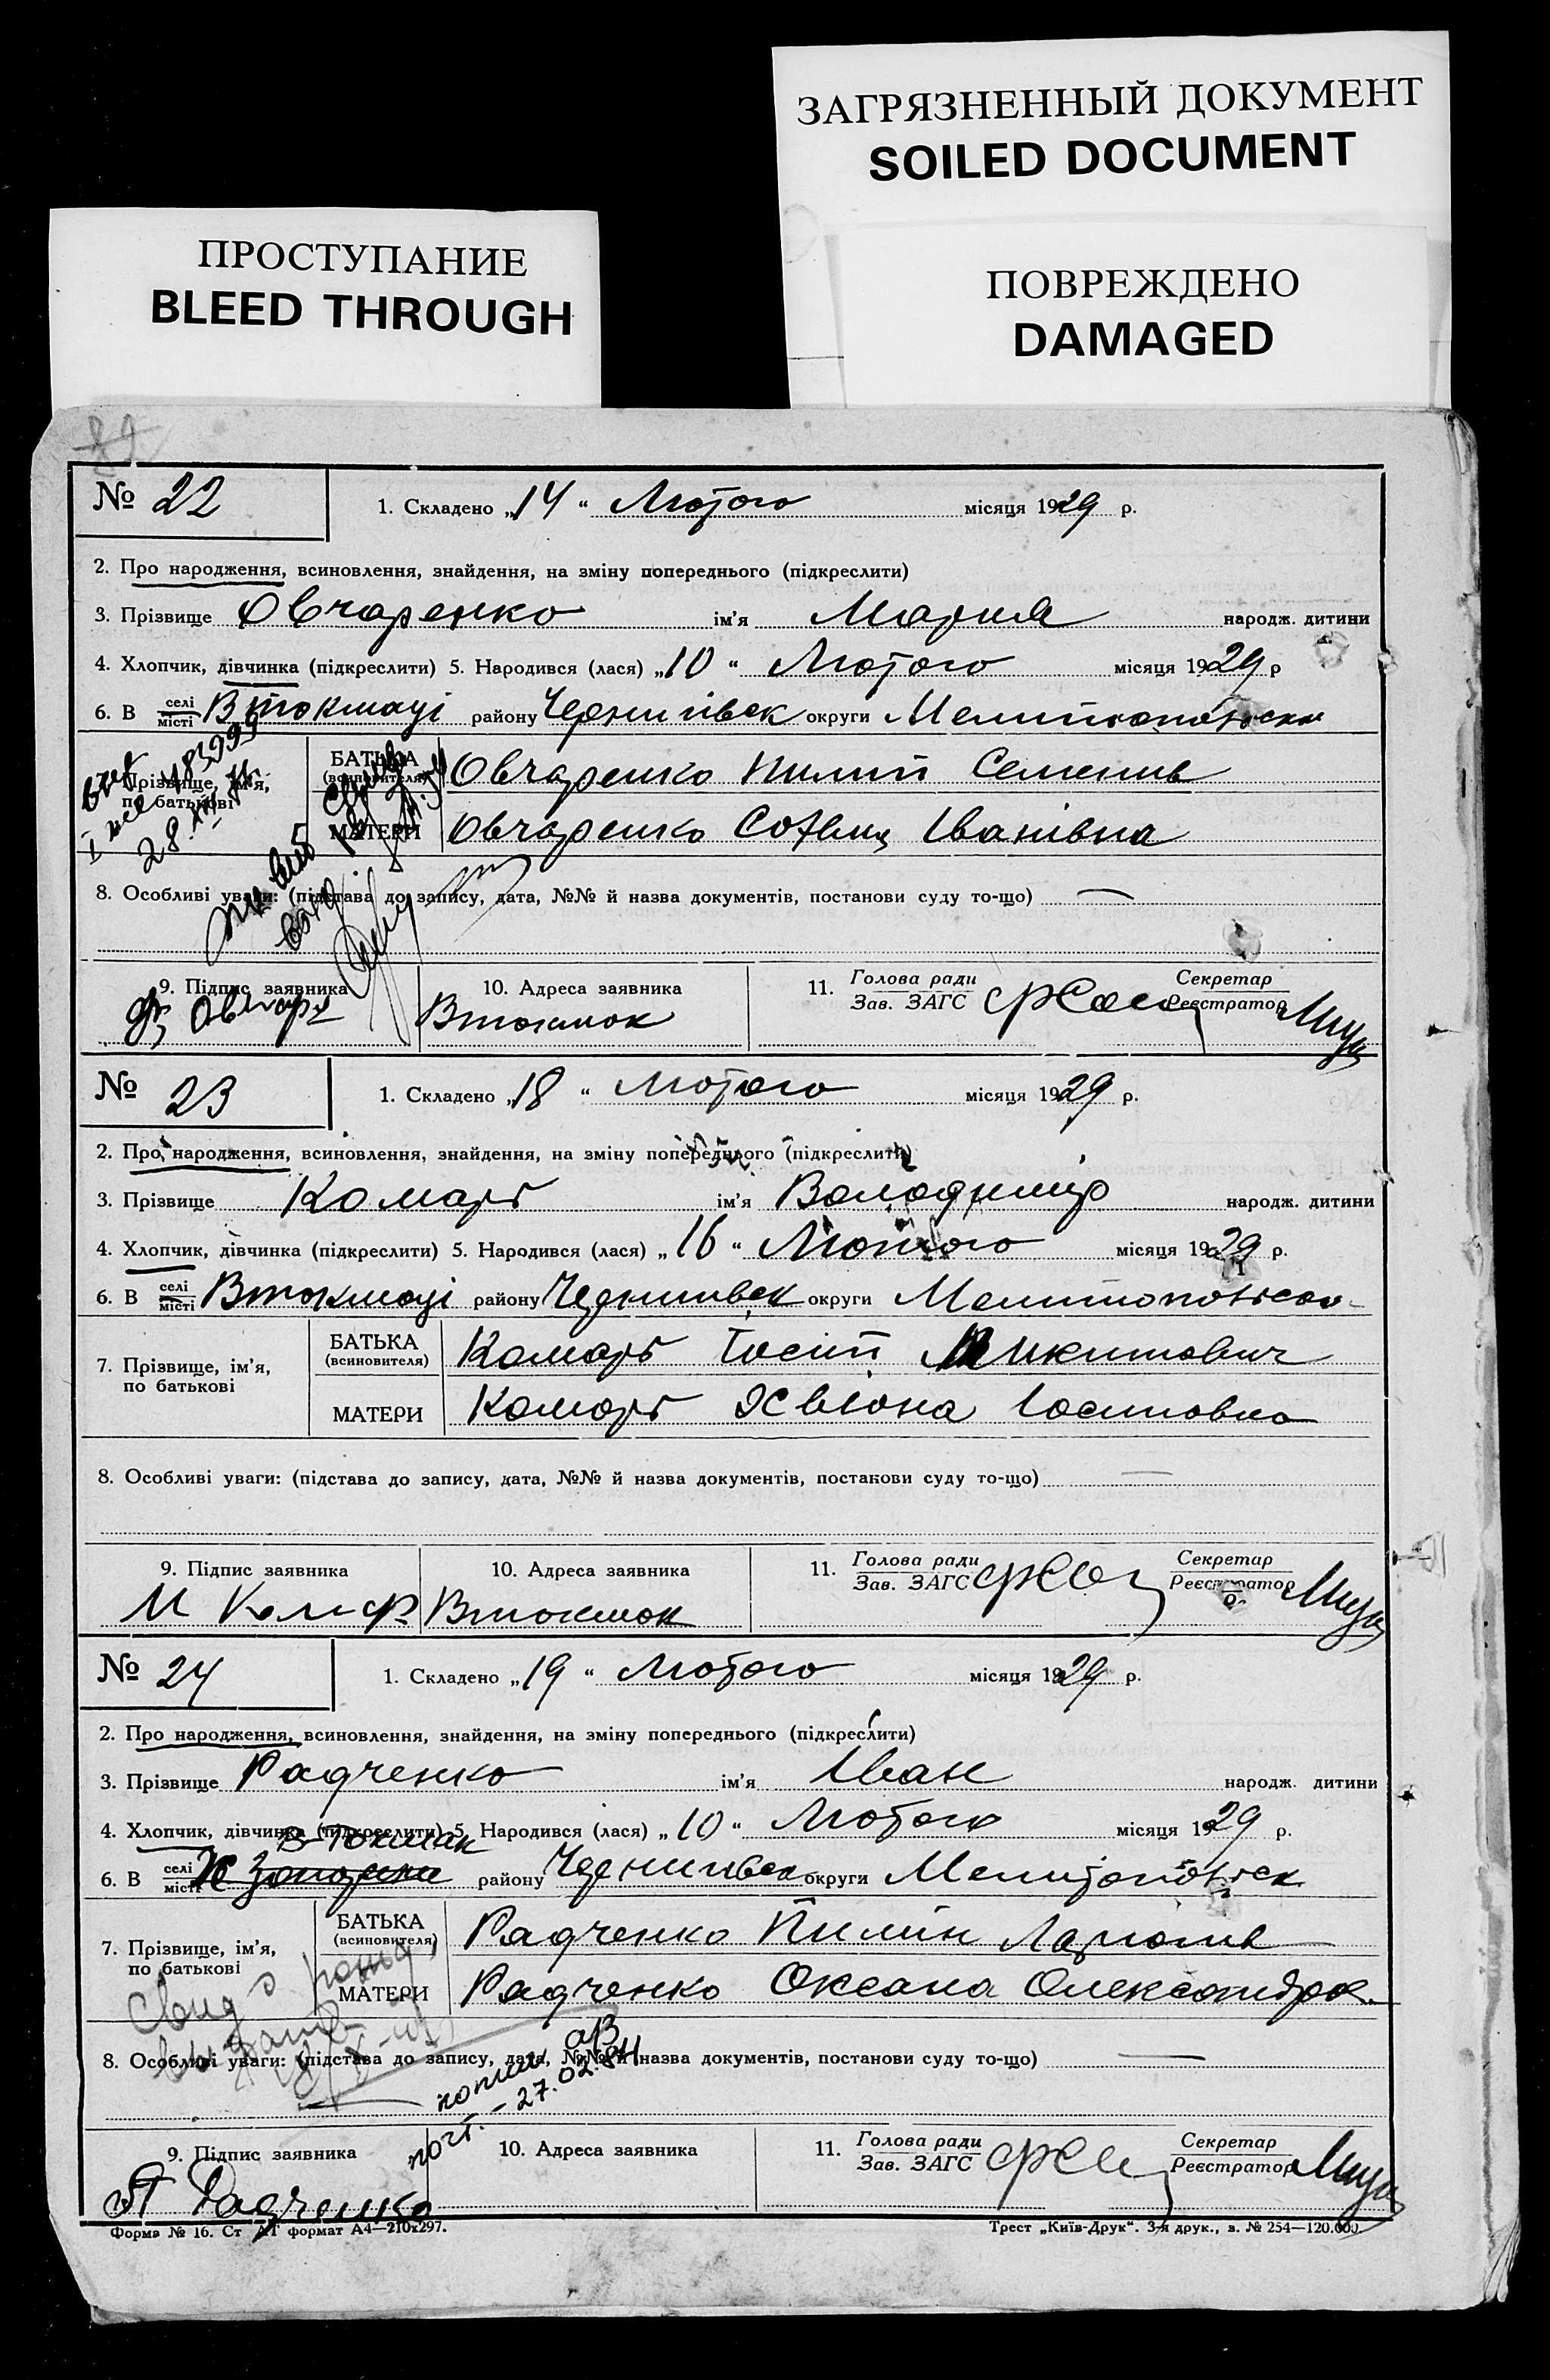 ЗАГРЯЗНЕННЫЙ ДОКУМЕНТ
SOILED DOCUMENT
ПРОСТУПАНИЕ
BLEED THROUGH
ПОВРЕЖДЕНО
DAMAGED
№ 22
1. Складено „14“ Лютого місяця 1929 р.
2. Про народження, всиновлення, знайдення, на зміну попереднього (підкреслити)
3. Прізвище Овчаренко ім'я Мария народж. дитини
4. Хлопчик, дівчинка (підкреслити) 5. Народився (лася) „10“ Лютого місяця 1929 р
6. В селі місті Втокмаці району Чернигівск округи Мелитопольськ
7. Прізвище, ім'я, по батькові
БАТЬКА (всиновителя) Овчаренко Пилип Семенів
МАТЕРИ Овчаренко Іванівна
8. Особливі уваги: (підстава до запису, дата, №№ й назва документів, постанови суду то-що) —
9. Підпис заявника
10. Адреса заявника Втокмак
11. Голова ради Зав. ЗАГС
Секретар Реєстратор
№ 23
1. Складено „18“ Лютого місяця 1929 р.
2. Про народження, всиновлення, знайдення, на зміну попереднього (підкреслити)
3. Прізвище Комарь ім'я Володимир народж. дитини
4. Хлопчик, дівчинка (підкреслити) 5. Народився (лася) „16“ Лютого місяця 1929 р.
6. В селі місті Втокмаці району Чернигівск округи Мелитопольськ
7. Прізвище, ім'я, по батькові
БАТЬКА (всиновителя) Комарь Іосіп Микитович
МАТЕРИ Комарь Іосиповна
8. Особливі уваги: (підстава до запису, дата, №№ й назва документів, постанови суду то-що) —
9. Підпис заявника
10. Адреса заявника Втокмак
11. Голова ради Зав. ЗАГС
Секретар Реєстратор
№ 24
1. Складено „19“ Лютого місяця 1929 р.
2. Про народження, всиновлення, знайдення, на зміну попереднього (підкреслити)
3. Прізвище Радченко ім'я Іван народж. дитини
4. Хлопчик, дівчинка (підкреслити) 5. Народився (лася) „10“ Лютого місяця 1929 р.
В-Токмак
6. В селі місті району Чернигівск округи Мелитопольськ
7. Прізвище, ім'я, по батькові
БАТЬКА (всиновителя) Радченко Пилип
МАТЕРИ Радченко Оксана Олександров.
8. Особливі уваги: (підстава до запису, дата, №№ й назва документів, постанови суду то-що) —
27.02.84
9. Підпис заявника Радченко
10. Адреса заявника
11. Голова ради Зав. ЗАГС
Секретар Реєстратор
Форма № 16. Ст АТ формат А4—210x297.
Трест „Київ-Друк“. 3-я друк., з. № 254—120.000.